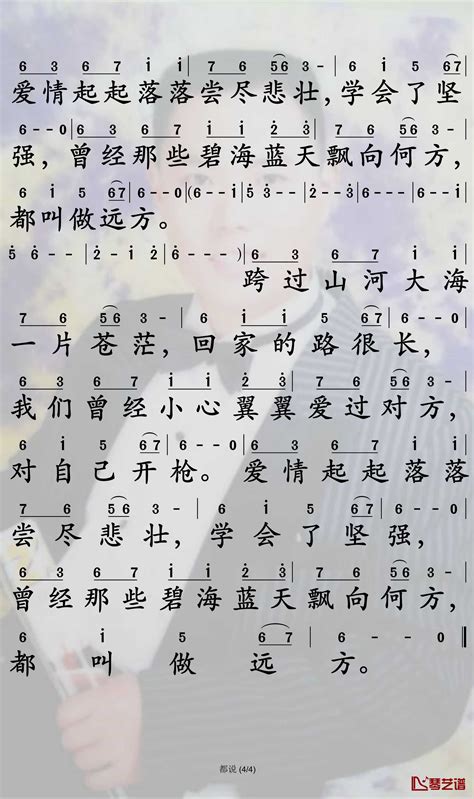 6 3 6 7 i i | 7 6 56 3 - | 6 i 5 67 |
爱情起起落落尝尽悲壮,学会了坚
6 - - 0 | 6 3 6 7 | i i 2̇ 3̇ | 7 6 56 3 - |
强,曾经那些碧海蓝天飘向何方,
6 i 5 67 | 6 - - 0 |(6 - - i | 5 - - 3̇ | 2̇ - - 3̇ |
都叫做远方。
5 6 - - | 2̇ - i 2̇ | 6 - - - )| 6 3 6 7 | i i
跨过山河大海
7 6 56 3 - | 6 i 5 67 | 6 - - 0 |
一片苍茫,回家的路很长,
6 3 6 7 | i i 2̇ 3̇ | 7 6 56 3 - |
我们曾经小心翼翼爱过对方,
6 i 5 67 | 6 - - 0 | 6 3 6 7 i i |
对自己开枪。爱情起起落落
7 6 56 3 - | 6 i 5 67 | 6 - - 0 |
尝尽悲壮,学会了坚强,
6 3 6 7 | i i 2̇ 3̇ | 7 6 56 3 - |
曾经那些碧海蓝天飘向何方,
6 i 5 67 | 6 - - 0 ‖
都叫做远方。
都说 (4/4)
琴艺谱